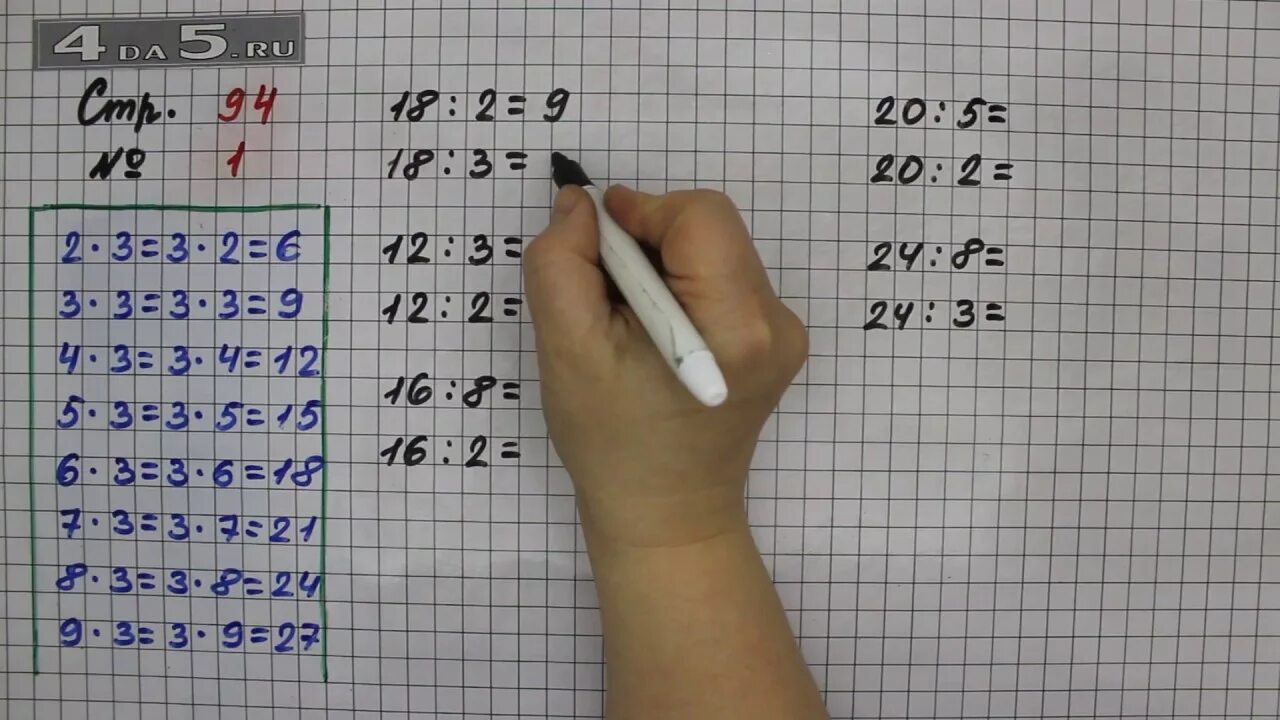 4 DA 5.RU
Стр. 94
№ 1
2 · 3 = 3 · 2 = 6
3 · 3 = 3 · 3 = 9
4 · 3 = 3 · 4 = 12
5 · 3 = 3 · 5 = 15
6 · 3 = 3 · 6 = 18
7 · 3 = 3 · 7 = 21
8 · 3 = 3 · 8 = 24
9 · 3 = 3 · 9 = 27
18 : 2 = 9
18 : 3 =
12 : 3 =
12 : 2 =
16 : 8 =
16 : 2 =
20 : 5 =
20 : 2 =
24 : 8 =
24 : 3 =